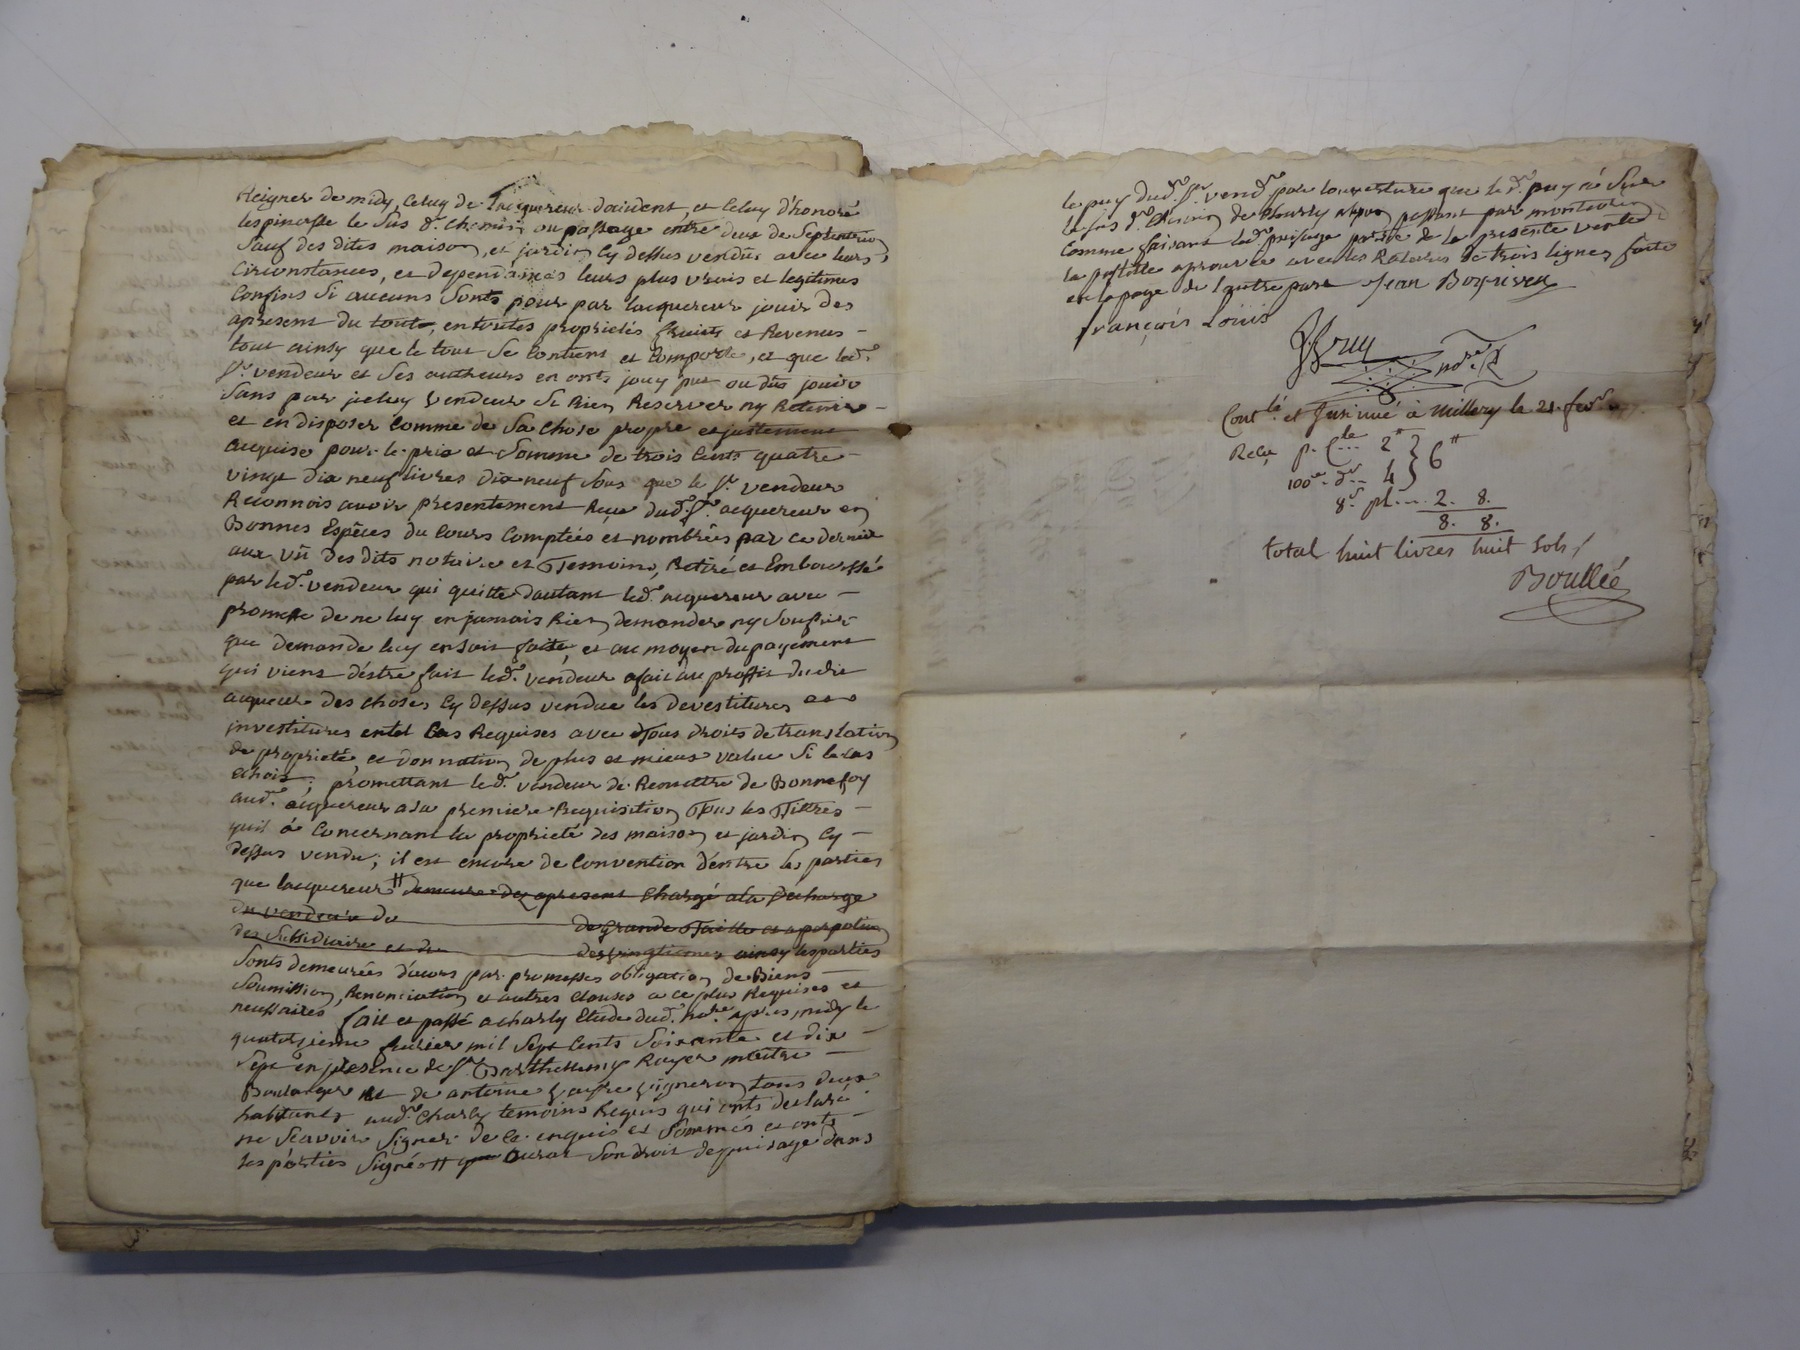 Reignes de midy, Celuy de Lacquereur doccident, et Celuy d'honoré
lespinasse le Sus d.t Chemin ou passage entre deux de Septentrion
Sauf des dites maison, et jardin Cy dessus vendus avec leurs
Circonstances, et dependances leurs plus vrais et legitimes
Confins Si aucuns Sonts pour par lacquereur jouir des
apresent du tout, en toutes proprietés fruits et Revenus –
tout ainsy que le tout Se Contient et Comporte, et que led.t
S.r vendeur et Ses autheurs en onts jouy put ou dus jouir
Sans par jceluy vendeur Se Rien Reserver ny Retenir –
et en disposer Comme de Sa Chose propre et justement
acquise pour le prix et Somme de trois Cents quatre –
vingt dix neuf livres dix neuf Sous que le S.r vendeur
Reconnois avoir presentement Reçue dud.t S.r acquereur en
Bonnes Espèces du Cours Comptées et nombrées par ce dernier
aux vû des dits notaire et Temoins, Retiré et Emboursé
par led.t vendeur qui quitte dautant led.t acquereur avec –
promesse de ne luy en jamais Rien demander ny Soufrir
que demande luy en Soit faite, et au moyen du payement
qui viens d'éstre fait led.t vendeur a fait au proffit dudit
acquereur des choses Cy dessus vendue les devestitures et
jnvestitures en tel Cas Requises avec Tous droits de translation
de proprieté, et donnation de plus et mieux value Si le cas
echois; promettant led.t vendeur de Remettre de Bonne foy
aud.t acquereur a la premiere Requisition Tous les Tittres –
quil á Concernant la proprieté des maison et jardin Cy –
dessus vendu; il est encore de Convention d'entre les parties
que lacquereur # demeure dez apresent Chargé a la décharge
du vendeur de de grande Taille
des Subsidiaire et du des vingtiemes ainsy les parties
Sonts demeurées d'acors par promesses obligation de Biens –
Soumission, Renonciation et autres Clauses a ce plus Requises et
necessaires fait et passé a charly Etude dud.t no.re apres midy le
quatorzieme fevrier mil Sept Cents Soixante et dix –
Sept en presence de S.r Barthelemy Royer maitre –
Boulanger et de antoine vigneron tous deux
habitants aud.t Charly temoins Requis qui onts declaré
ne Scavoir Signer de Ce enquis et Sommés et onts –
les parties Signés # que auras Son droit de puisage dans
le puy dud.t S.r vend.r par louverture que led.t puy á Sur
le sus d.t Chemin de Charly passant par
Comme faisant led.t puisage partie de la presente vente
la postille aprouvée avec les Ratures de trois lignes faite
en la page de lautre part Jean
françois Louis
no.re
Cont.lé et Jnsinué à Millery le 21. fev.r
Reçu p. C.le ... 2# } 6#
100.e d.r .. 4
8.s pl. ... 2. 8.
8. 8.
total huit livres huit sols /
Boullée